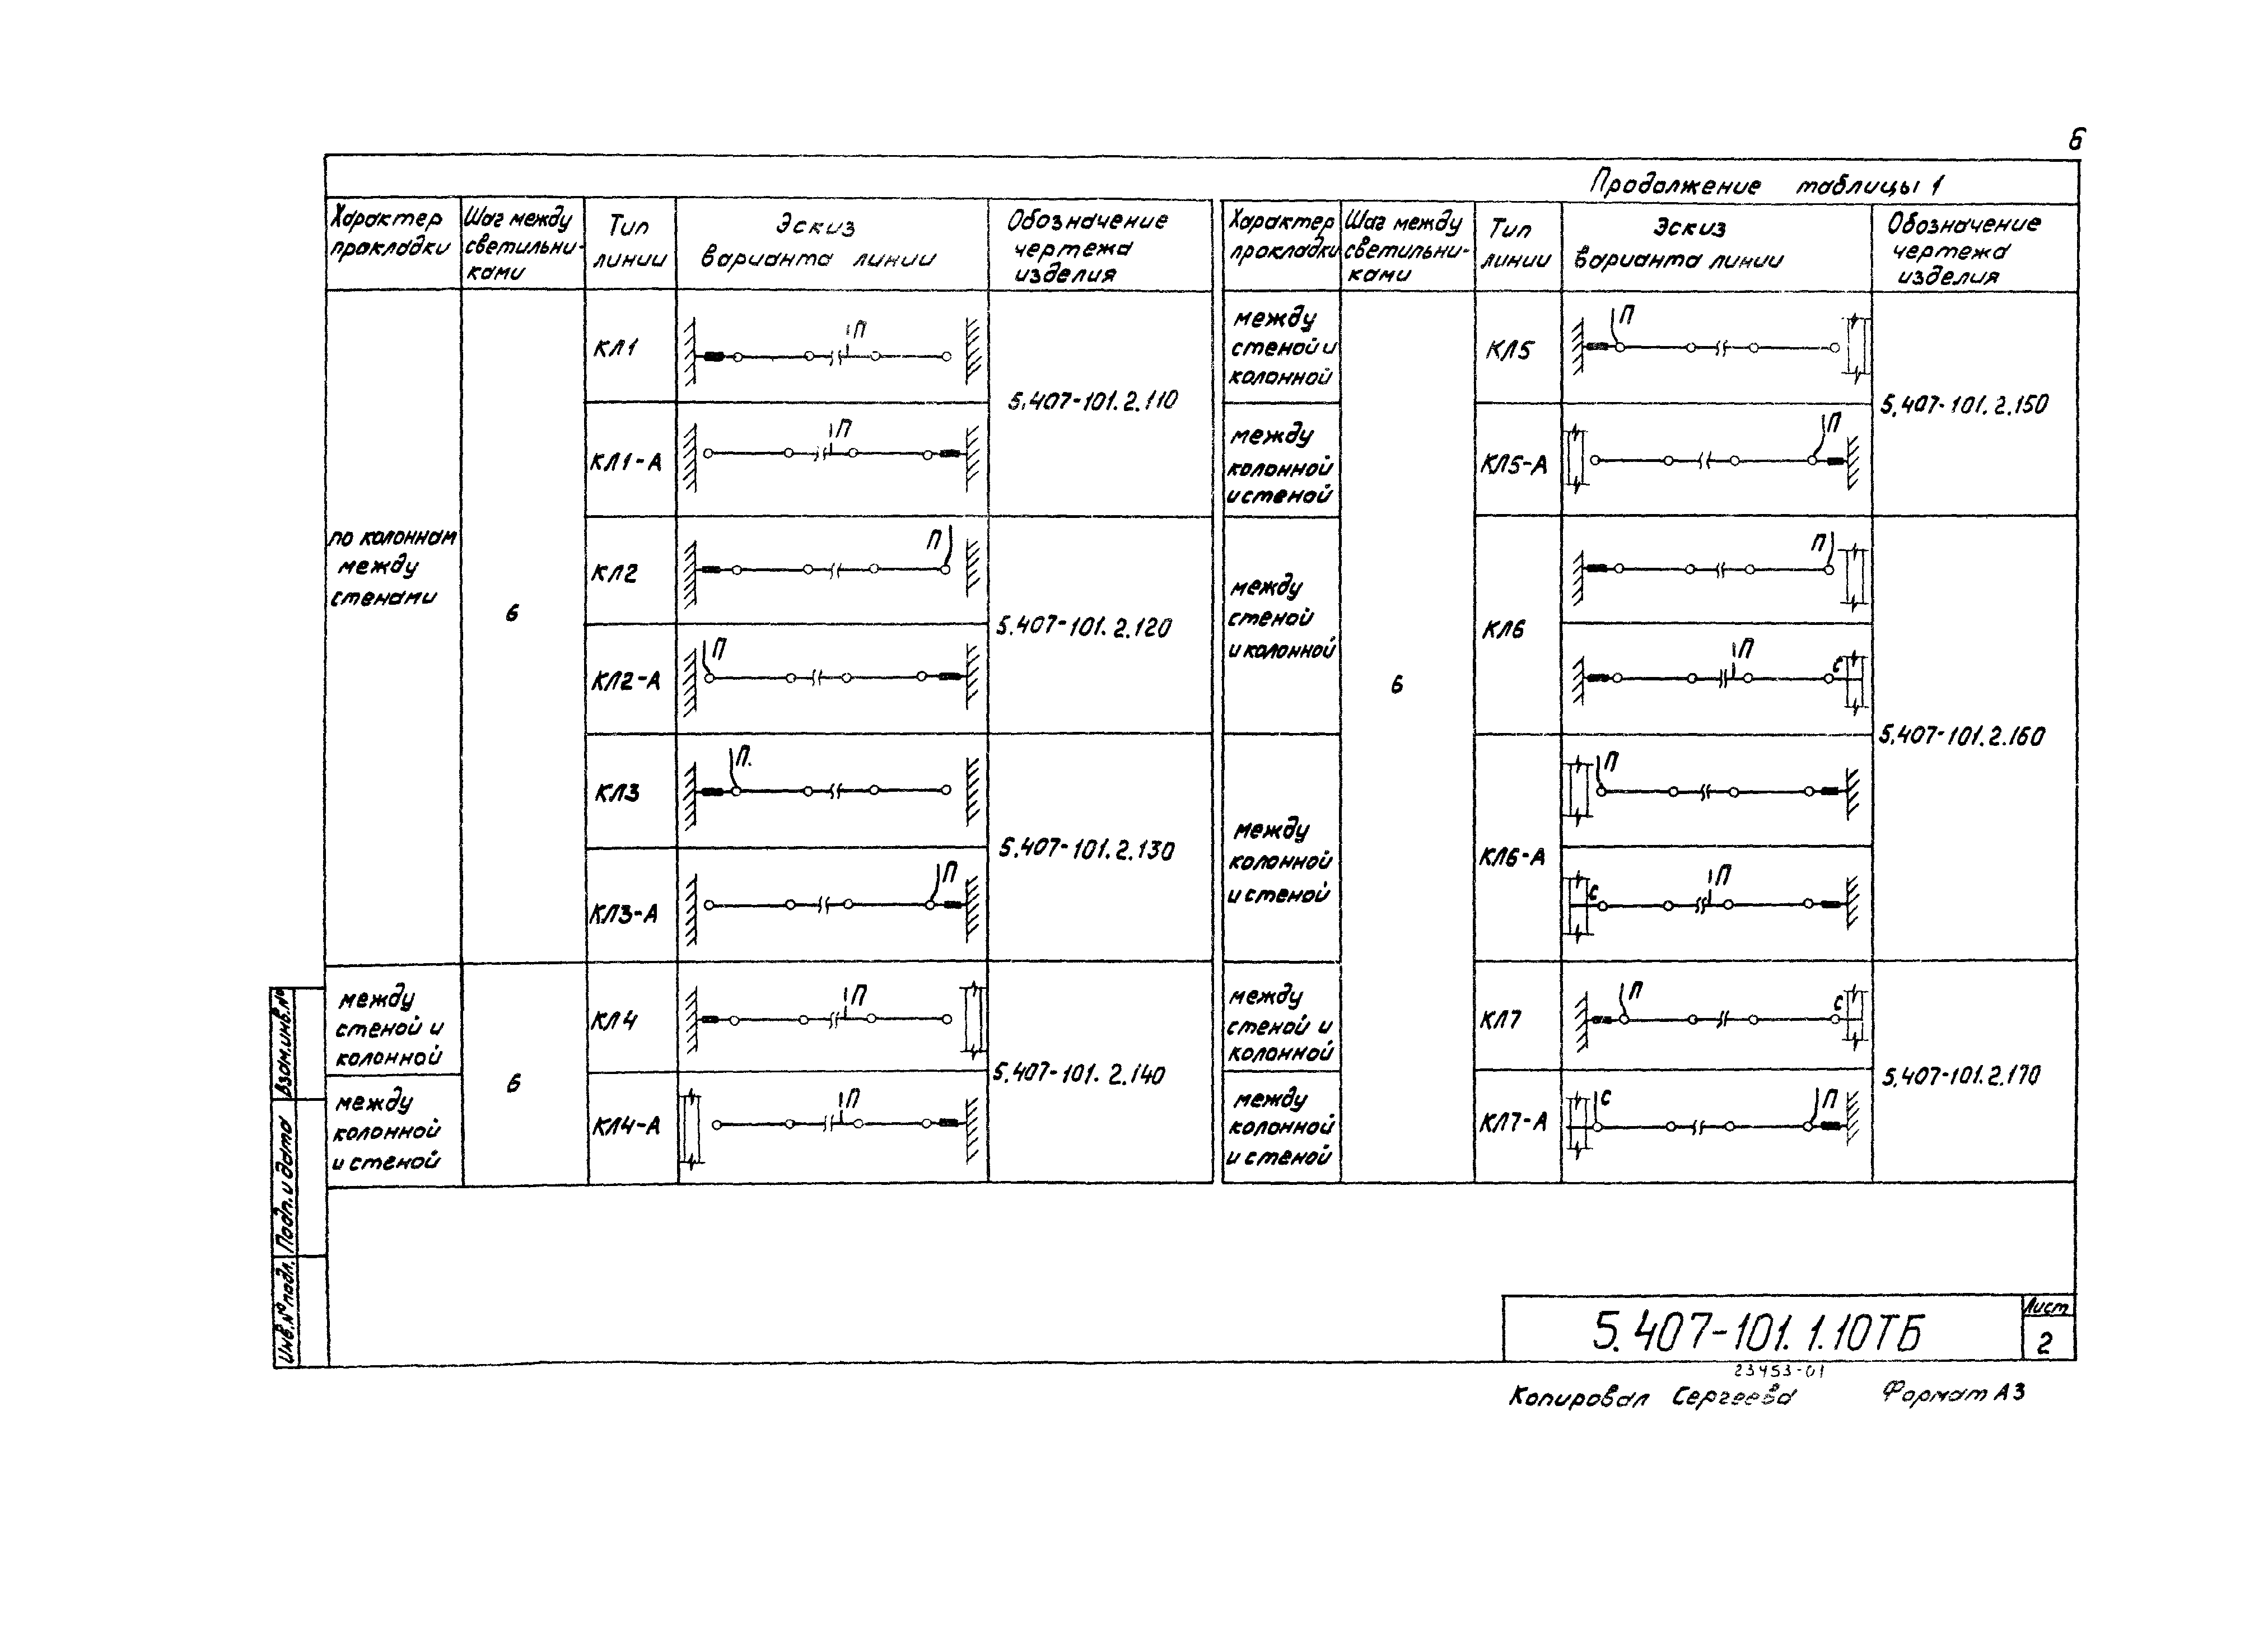 6
Продолжение таблицы 1
Характер прокладки
Шаг между светильни-ками
Тип линии
Эскиз варианта линии
Обозначение чертежа изделия
по колоннам
между
стенами
6
КЛ1
П
5.407-101.2.110
КЛ1-А
П
КЛ2
П
5.407-101.2.120
КЛ2-А
П
КЛ3
П.
5.407-101.2.130
КЛ3-А
П
между
стеной и
колонной
6
КЛ4
П
5.407-101.2.140
между
колонной
и стеной
КЛ4-А
П
Характер прокладки
Шаг между светильни-ками
Тип линии
Эскиз варианта линии
Обозначение чертежа изделия
между
стеной и
колонной
6
КЛ5
П
5.407-101.2.150
между
колонной
и стеной
КЛ5-А
П
между
стеной
и колонной
КЛ6
П
П
С
5.407-101.2.160
между
колонной
и стеной
КЛ6-А
П
П
С
между
стеной и
колонной
КЛ7
П
С
5.407-101.2.170
между
колонной
и стеной
КЛ7-А
С
П
Взам.инв.№
Подп. и дата
Инв.№ подл.
5.407-101.1.10ТБ
Лист
2
23453-01
Копировал Сергеева
Формат А3